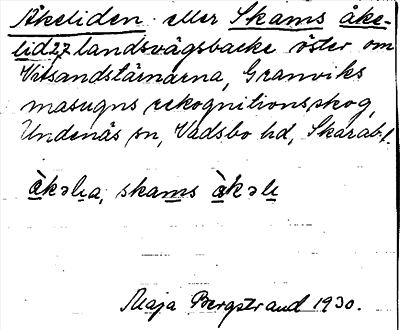 Åkeliden eller Skams åke-
lid27 landsvägsbacke öster om
Vitsandstärnarna, Granviks
masugns rekognitionsskog,
Undenäs sn, Vadsbo hd, Skarab.l.
àkəlıa, skams àkəlı
Maja Bergstrand 1930.